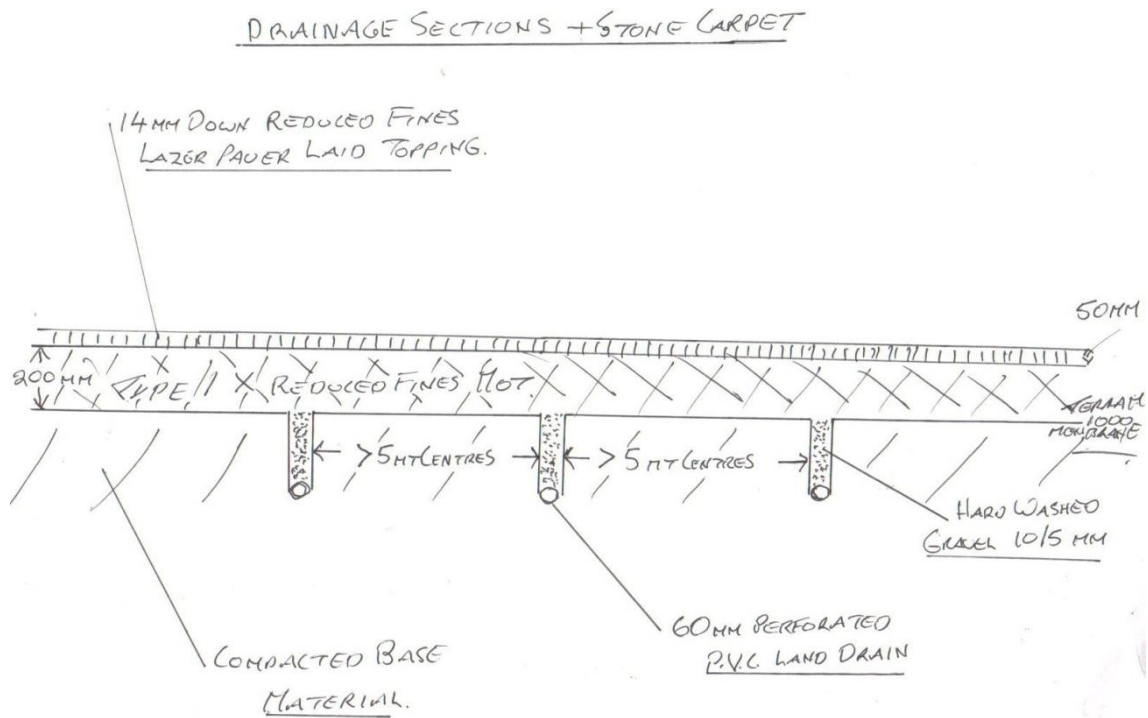 DRAINAGE SECTIONS + STONE CARPET
14MM DOWN REDUCED FINES
LAZER PAVER LAID TOPPING.
50MM
200MM
TYPE 1 X REDUCED FINES MOT.
TERRAM
1000
MEMBRANE
> 5MT CENTRES
> 5MT CENTRES
HARD WASHED
GRAVEL 10/5 MM
60MM PERFORATED
P.V.C. LAND DRAIN
COMPACTED BASE
MATERIAL.